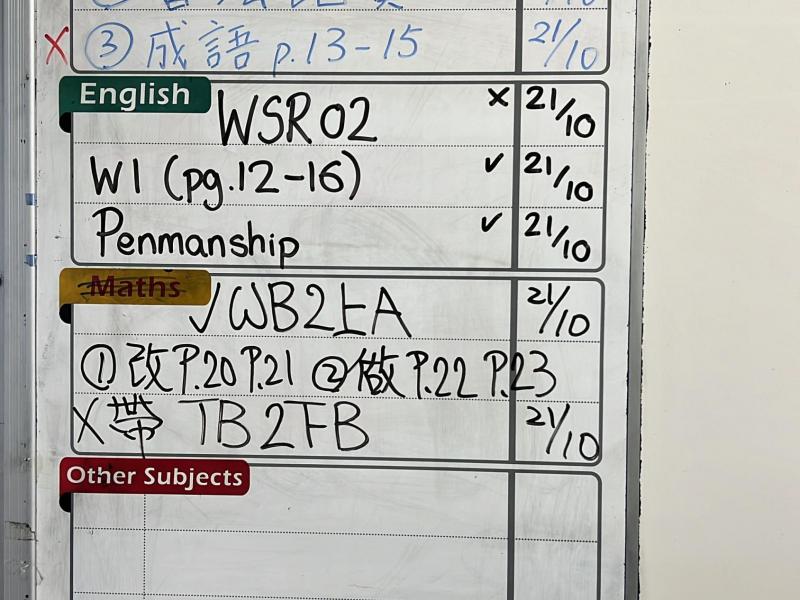 X ③ 成語 p.13-15 21/10
English
WSR02 × 21/10
W1 (pg.12-16) ✓ 21/10
Penmanship ✓ 21/10
Maths
✓WB2上A 21/10
① 改 P.20 P.21 ② 做 P.22 P.23
X 帶 TB2下B 21/10
Other Subjects